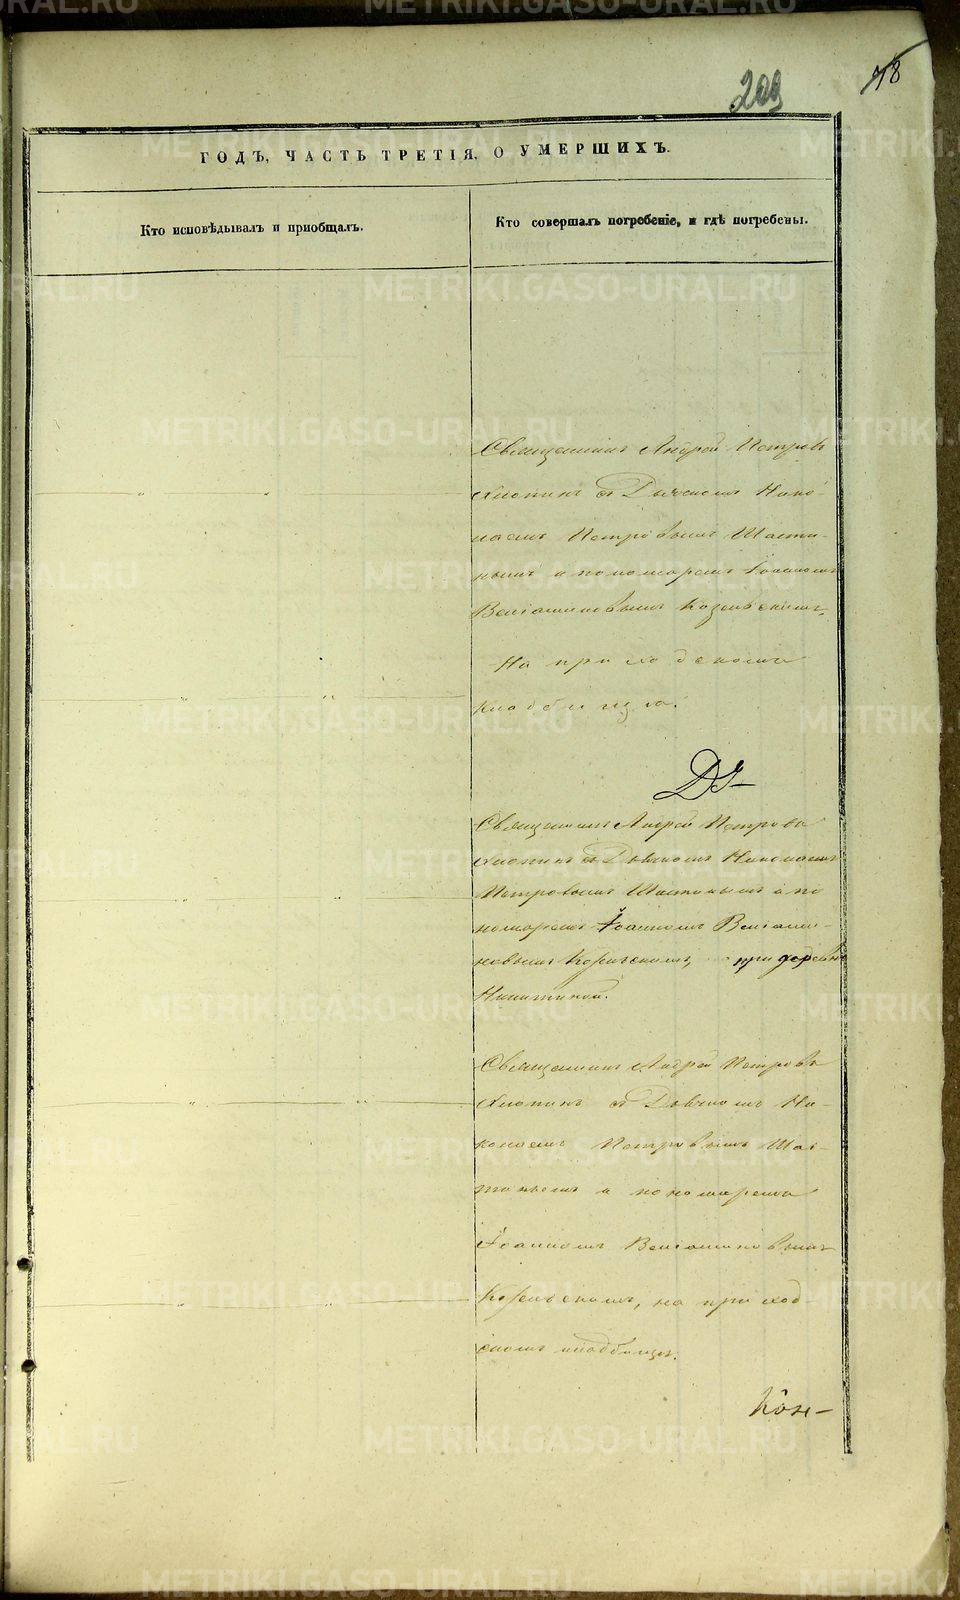 209
78
ГОДЪ, ЧАСТЬ ТРЕТІЯ, О УМЕРШИХЪ.
Кто исповѣдывалъ и приобщалъ.
Кто совершалъ погребеніе, и гдѣ погребены.
Священникъ Андрей Петровъ
съ Дьячкомъ Нико-
лаемъ Петровымъ Шасти-
нымъ и пономаремъ Іоанномъ
Веніаминовымъ
На приходскомъ
кладбищѣ.
Священникъ Андрей Петровъ
съ Дьячкомъ Николаемъ
Петровымъ Шастинымъ и по
номаремъ Іоанномъ Веніами-
новымъ при деревнѣ
Никитиной.
Священникъ Андрей Петровъ
съ Дьячкомъ Ни-
колаемъ Петровымъ Шас-
тинымъ и пономаремъ
Іоанномъ Веніаминовымъ
на приход-
скомъ кладбищѣ.
METRIKI.GASO-URAL.RU